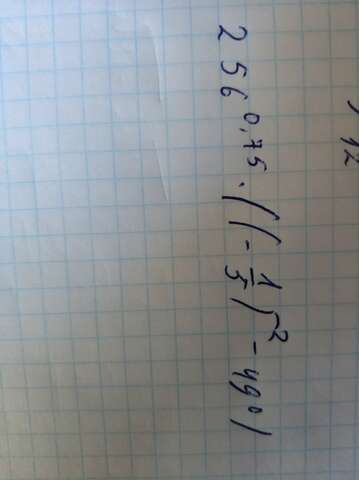 12
256^0,75 · ((-1/5)^-2 - 49^0)